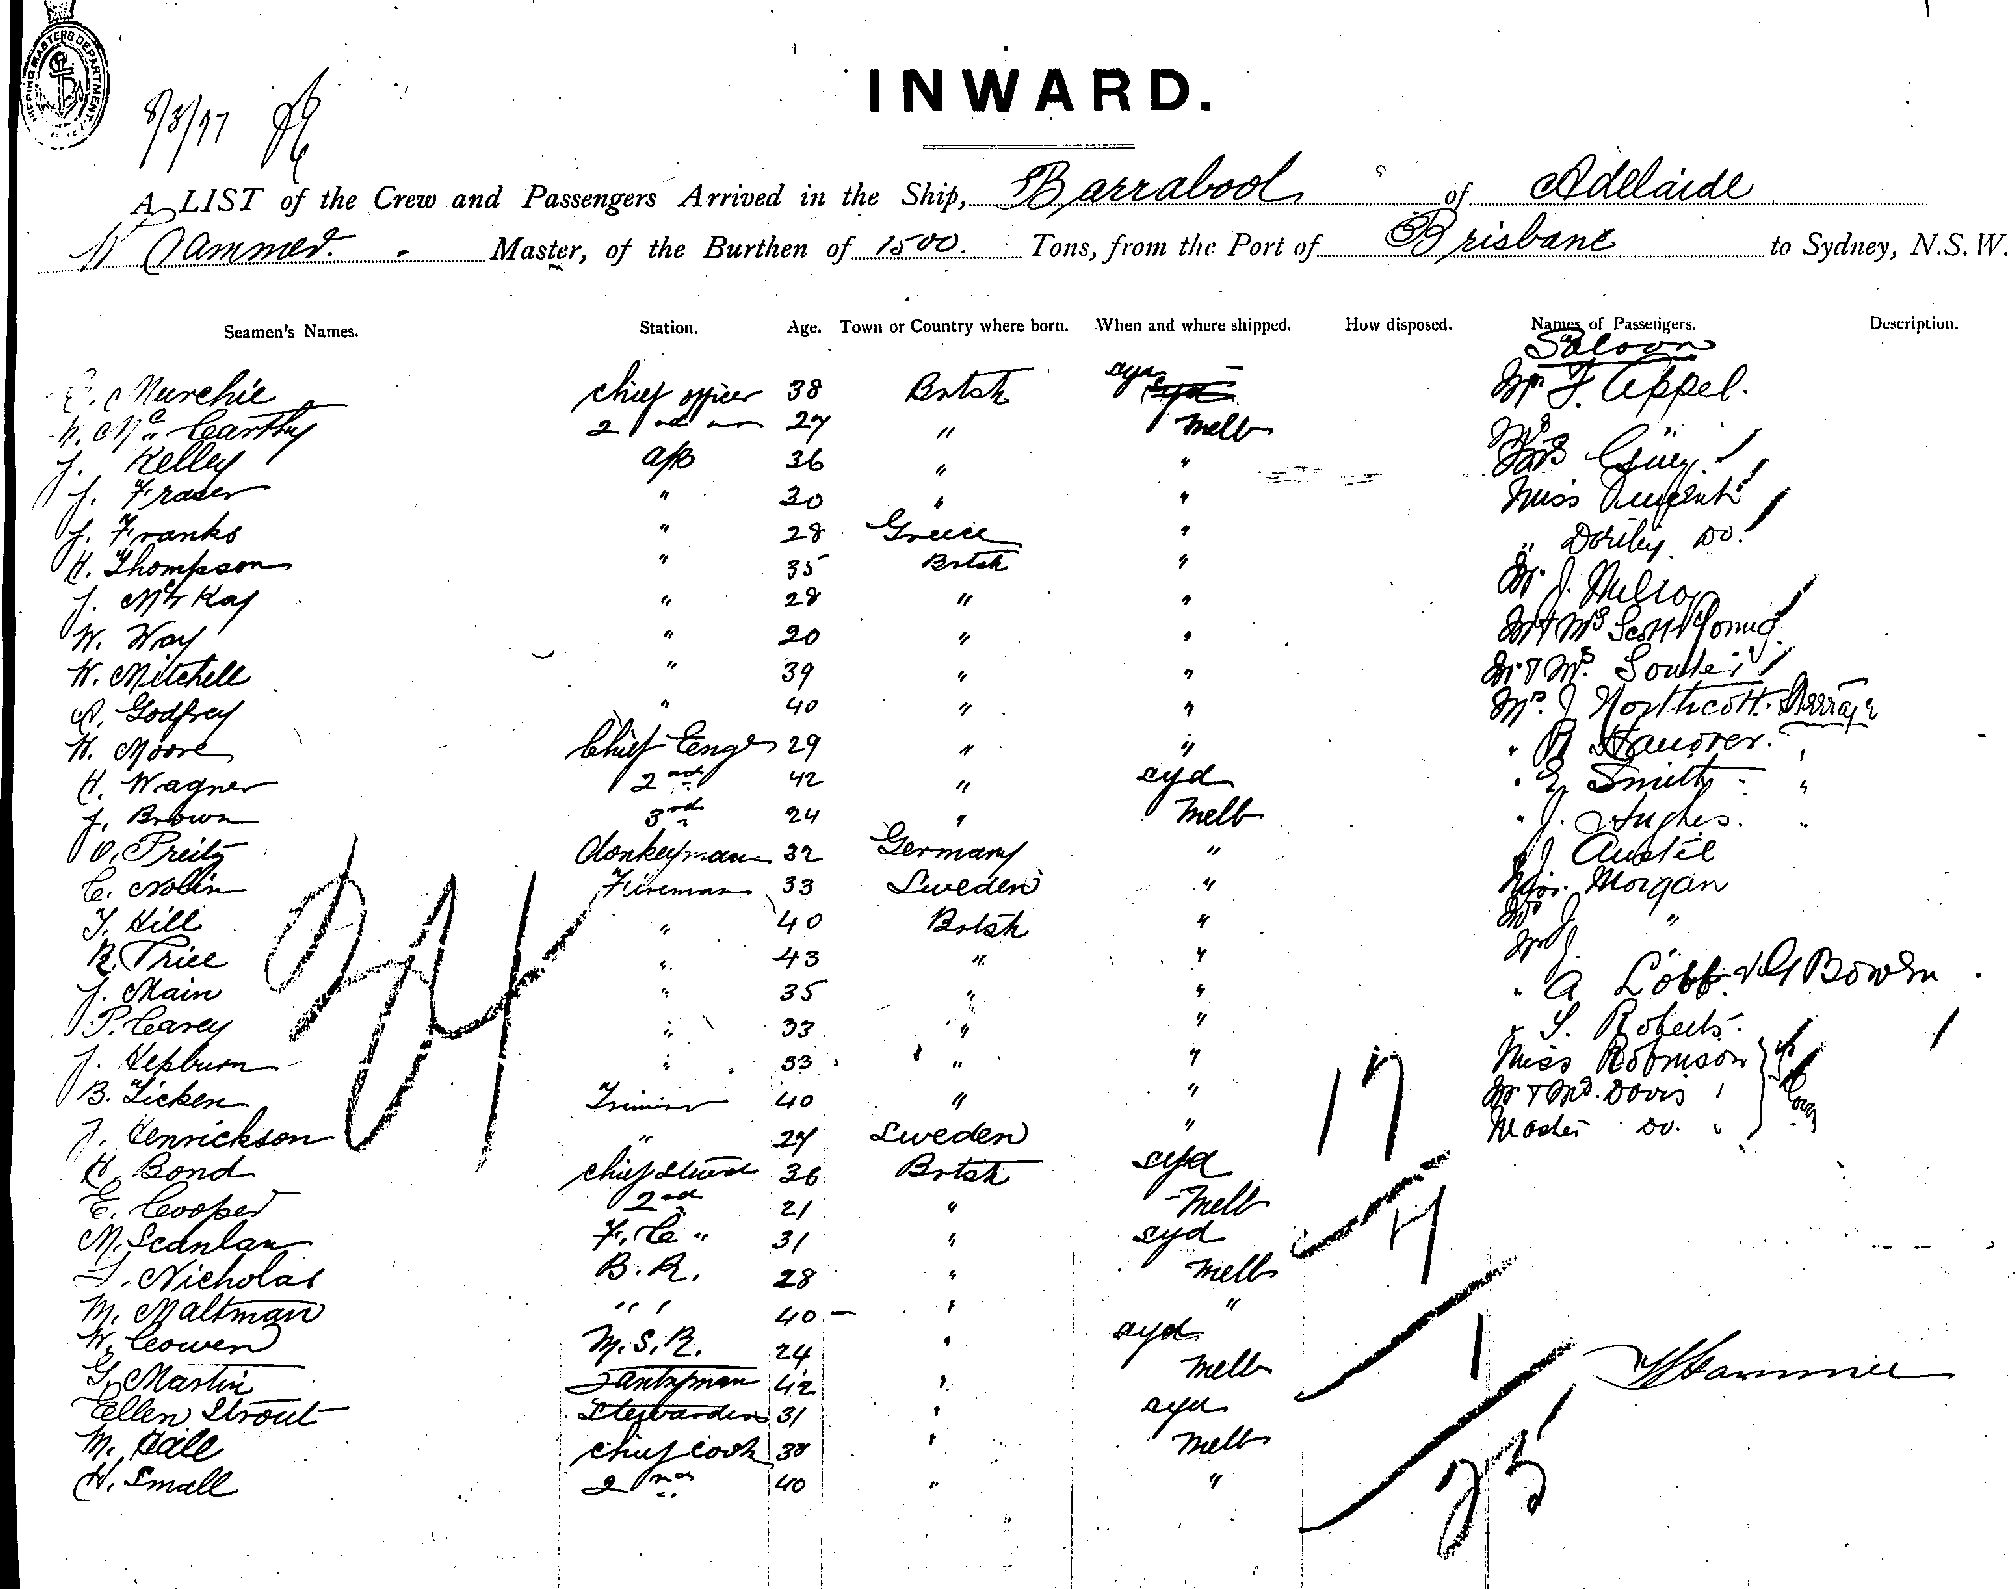 SHIPPING MASTERS DEPARTMENT
8/3/97
INWARD.
A LIST of the Crew and Passengers Arrived in the Ship, Barrabool of Adelaide
Master, of the Burthen of 1500 Tons, from the Port of Brisbane to Sydney, N.S.W.
Seamen's Names. Station. Age. Town or Country where born. When and where shipped. How disposed. Names of Passengers. Description.
Saloon
Murchie chief officer 38 Brtsh syd Mr F. Appel.
McCarthy 2nd " 27 " Melb
J. Kelley A/B 36 " " Mrs
J. Fraser " 30 " " Miss
J. Franks " 28 Greece " " Do.
H. Thompson " 35 Brtsh " Mr J.
J. McKay " 28 " " Mr & Mrs Scott Young
W. Way " 20 " " Mr & Mrs Souter
W. Mitchell " 39 " " Mr. J Northcott. Steerage
A. Godfrey " 40 " " " R Hanover. "
H. Moore Chief Engr 29 " " " E Smith "
H. Wagner 2nd 42 " syd " J. Hughes. "
J. Brown 3rd 24 " Melb J Austie
O. Preitz donkeyman 32 Germany " Morgan
C. Nolin Fireman 33 Sweden " "
T. Hill " 40 Brtsh "
R. Price " 43 " " A Lobb & G Bowen
J. Main " 35 " " S. Roberts.
P. Carey " 33 " " Miss Robinson
J. Hepburn " 33 " " Mr & Mrs. Davis "
B. Licken Trimmer 40 " " Master Do. "
J. Henrickson " 27 Sweden "
H. Bond chief Stwd 36 Brtsh syd
E. Cooper 2nd 21 " Melb
M. Scanlan F. C. " 31 " syd
Nicholas B. R. 28 " Melb
M. Maltman " " 40 " "
W. Cowen M. S. R. 24 " syd
G. Martin Pantryman 42 " Melb
Ellen Strout Stewardess 31 " syd
M. Hall chief cook 38 " Melb
H. Small 2nd " 40 " "
34
17
4
1